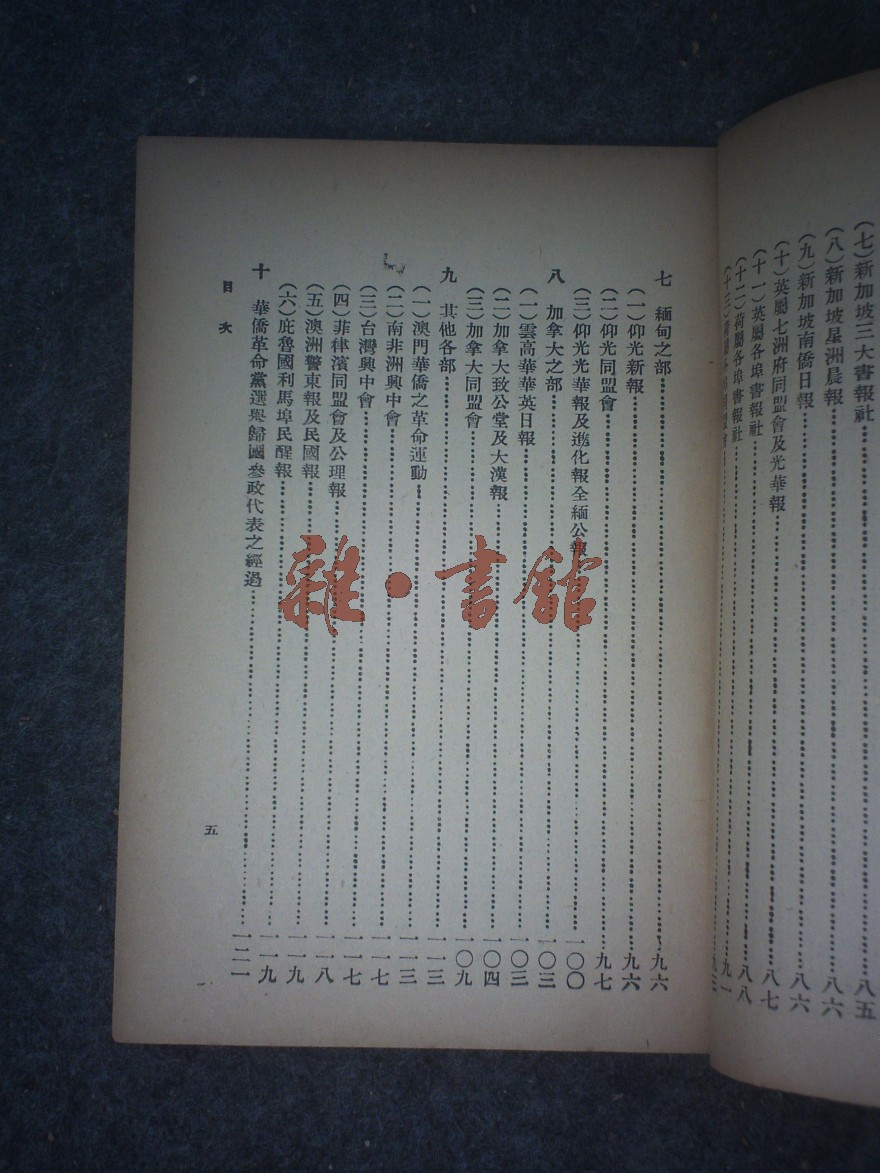 (七)新加坡三大書報社……八五
(八)新加坡星洲晨報……八六
(九)新加坡南僑日報……八六
(十)英屬七洲府同盟會及光華報……八七
(十一)英屬各埠書報社……八八
(十二)荷屬各埠書報社……九一
(十三)
七 緬甸之部……九六
(一)仰光新報……九六
(二)仰光同盟會……九七
(三)仰光光華報及進化報全緬公報……一〇〇
八 加拿大之部……一〇三
(一)雲高華華英日報……一〇三
(二)加拿大致公堂及大漢報……一〇四
(三)加拿大同盟會……一〇九
九 其他各部……一一三
(一)澳門華僑之革命運動……一一三
(二)南非洲興中會……一一七
(三)台灣興中會……一一七
(四)菲律濱同盟會及公理報……一一八
(五)澳洲警東報及民國報……一一九
(六)庇魯國利馬埠民醒報……一一九
十 華僑革命黨選舉歸國參政代表之經過……一二一
目次
五
雜·書館